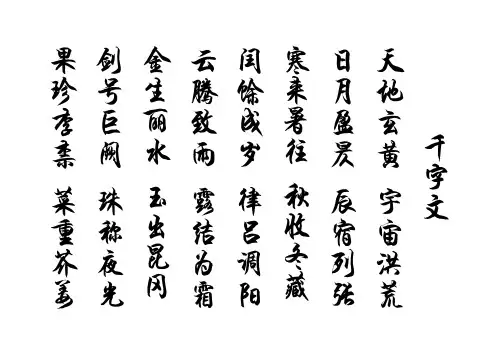 千字文
天地玄黄 宇宙洪荒
日月盈昃 辰宿列张
寒来暑往 秋收冬藏
闰馀成岁 律吕调阳
云腾致雨 露结为霜
金生丽水 玉出昆冈
剑号巨阙 珠称夜光
果珍李柰 菜重芥姜